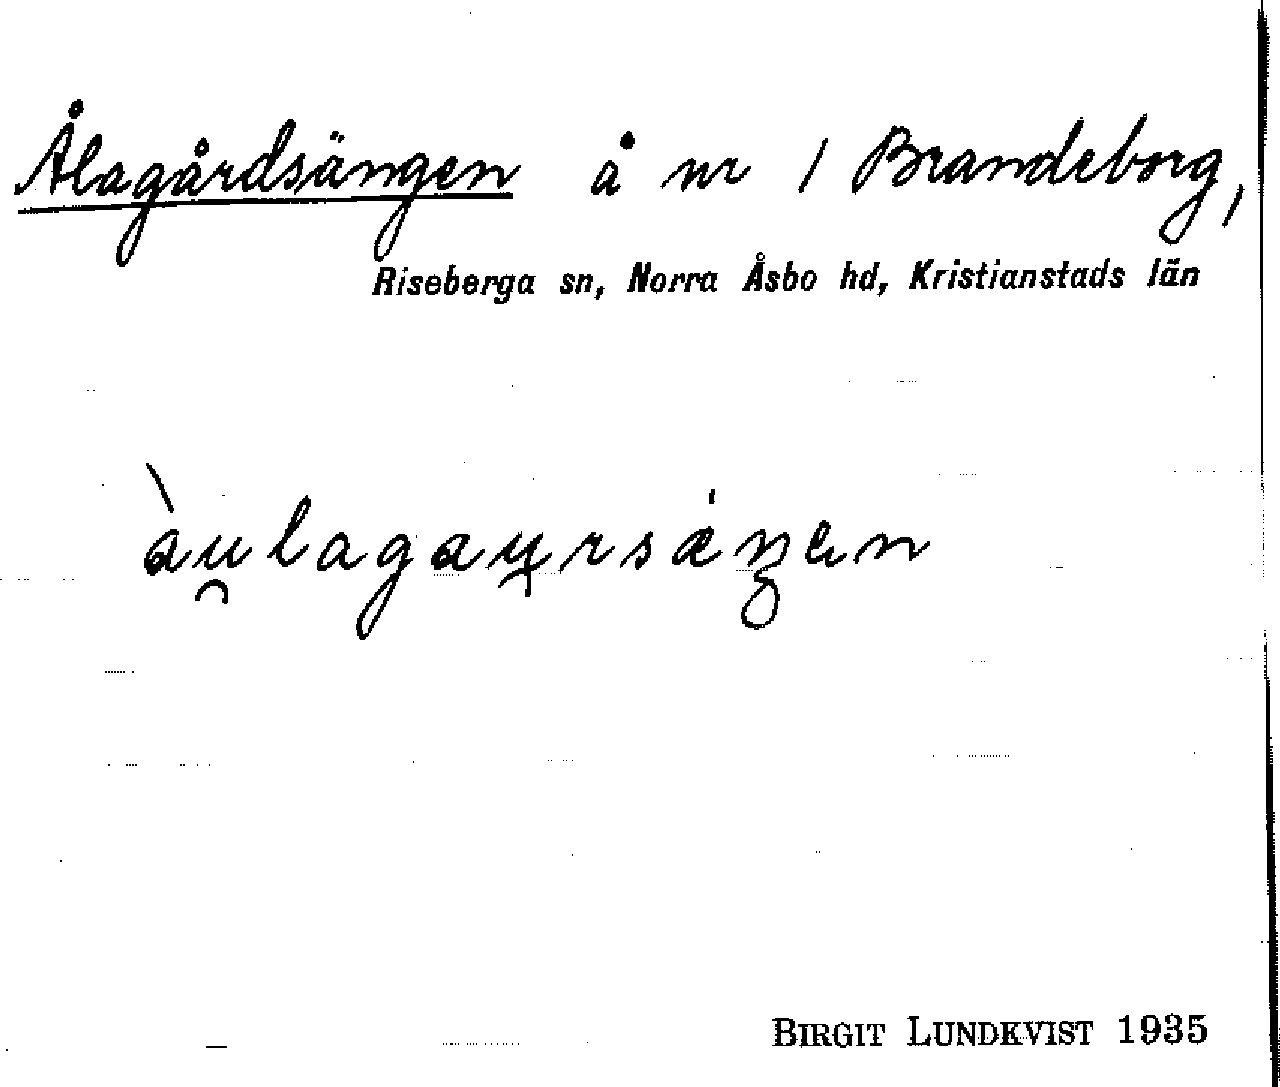 Ålagårdsängen å nr 1 Brandeborg,
Riseberga sn, Norra Åsbo hd, Kristianstads län
àu̯lagau̯rsǽŋen
BIRGIT LUNDKVIST 1935